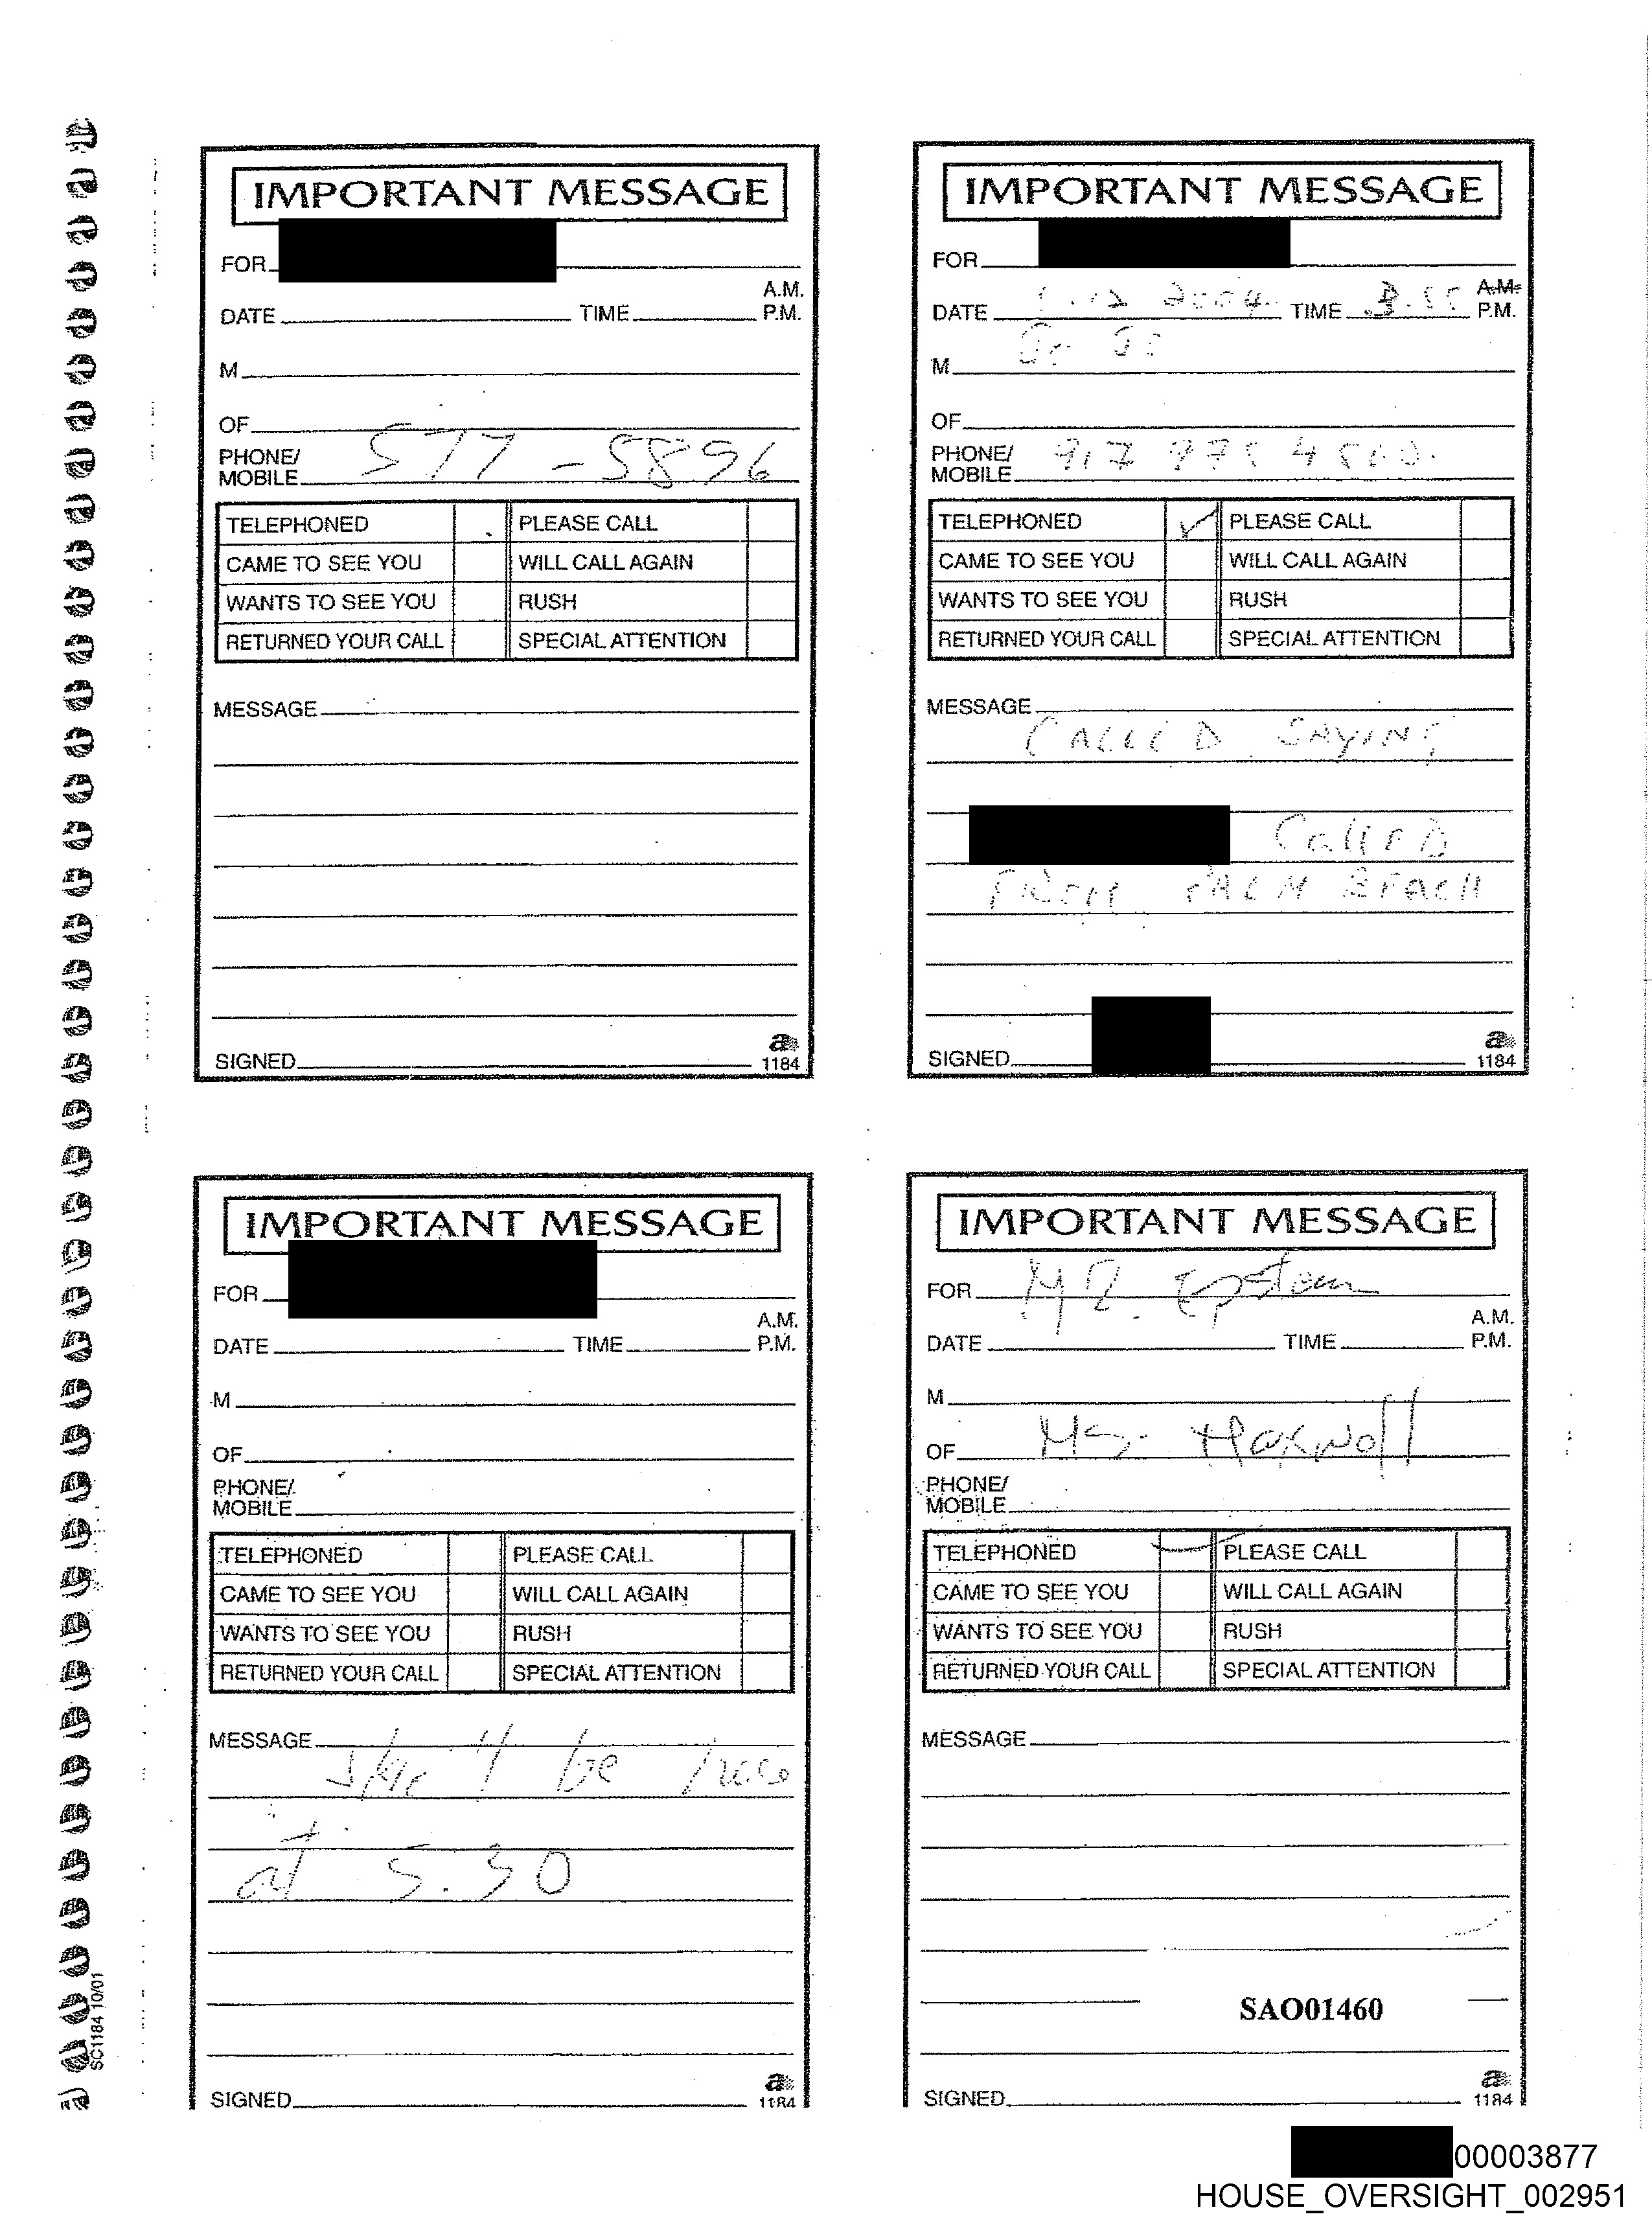 IMPORTANT MESSAGE
FOR
A.M.
DATE TIME P.M.
M
OF
PHONE/ 577 - 5896
MOBILE
TELEPHONED PLEASE CALL
CAME TO SEE YOU WILL CALL AGAIN
WANTS TO SEE YOU RUSH
RETURNED YOUR CALL SPECIAL ATTENTION
MESSAGE
SIGNED
a
1184
IMPORTANT MESSAGE
FOR
A.M.
DATE 2004 TIME P.M.
M
OF
PHONE/ 917
MOBILE
TELEPHONED ✓ PLEASE CALL
CAME TO SEE YOU WILL CALL AGAIN
WANTS TO SEE YOU RUSH
RETURNED YOUR CALL SPECIAL ATTENTION
MESSAGE
CALLED SAYING
CallED
FROM PALM BEACH
SIGNED
a
1184
IMPORTANT MESSAGE
FOR
A.M.
DATE TIME P.M.
M
OF
PHONE/
MOBILE
TELEPHONED PLEASE CALL
CAME TO SEE YOU WILL CALL AGAIN
WANTS TO SEE YOU RUSH
RETURNED YOUR CALL SPECIAL ATTENTION
MESSAGE
be
at 5.30
SIGNED
a
1184
IMPORTANT MESSAGE
FOR MR. Epstein
A.M.
DATE TIME P.M.
M
OF Ms. Maxwell
PHONE/
MOBILE
TELEPHONED ✓ PLEASE CALL
CAME TO SEE YOU WILL CALL AGAIN
WANTS TO SEE YOU RUSH
RETURNED YOUR CALL SPECIAL ATTENTION
MESSAGE
SAO01460
SIGNED
a
1184
SC1184 10/01
00003877
HOUSE_OVERSIGHT_002951